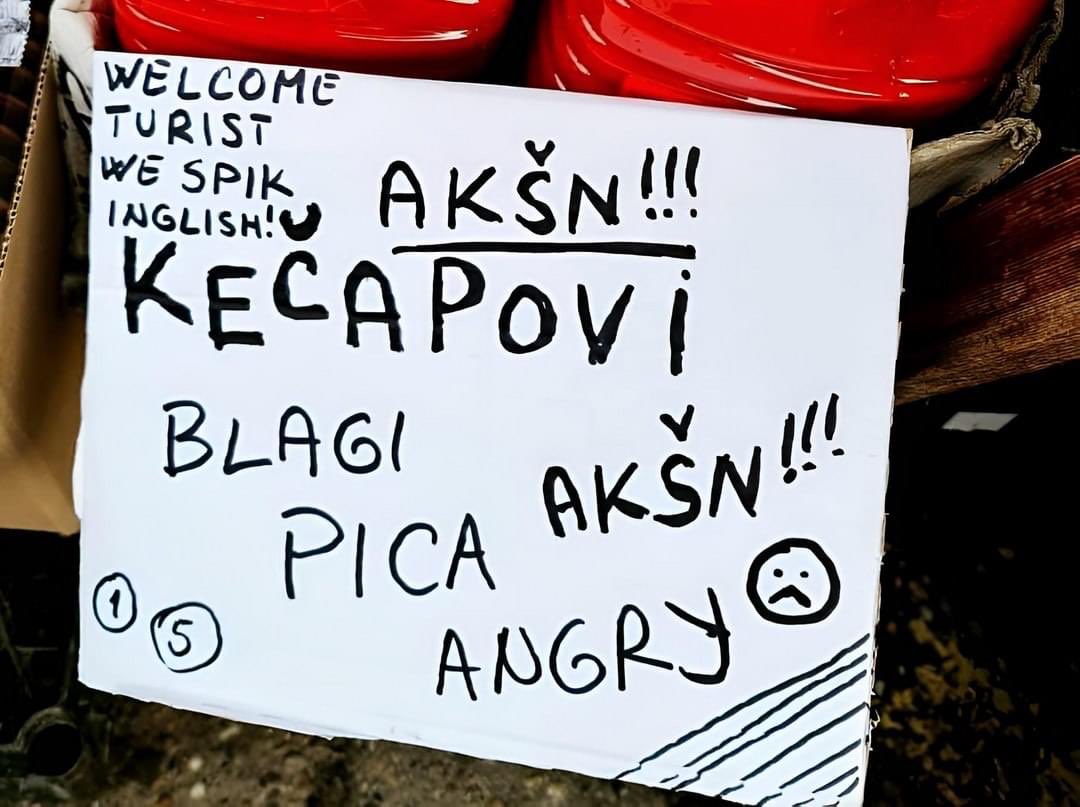 WELCOME
TURIST
WE SPIK
INGLISH!
AKŠN!!!
KEČAPOVI
BLAGI
AKŠN!!!
PICA
ANGRY
1
5